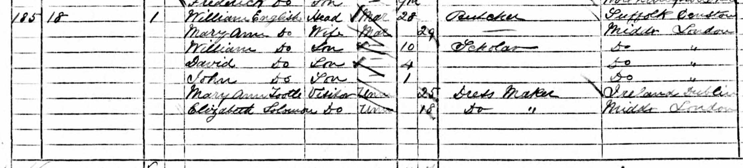 Frederick Do Son 9m
185 18 1 William English Head Mar 28 Butcher Suffolk
Mary Ann Do Wife Mar 29 Middx London
William Do Son 10 Scholar Do "
David Do Son 4 Do "
John Do Son 1 Do "
Mary Ann Tootle Visitor Unm 25 Dress Maker Ireland Dublin
Elizabeth Solomon Do Unm 18 Do " Middx London